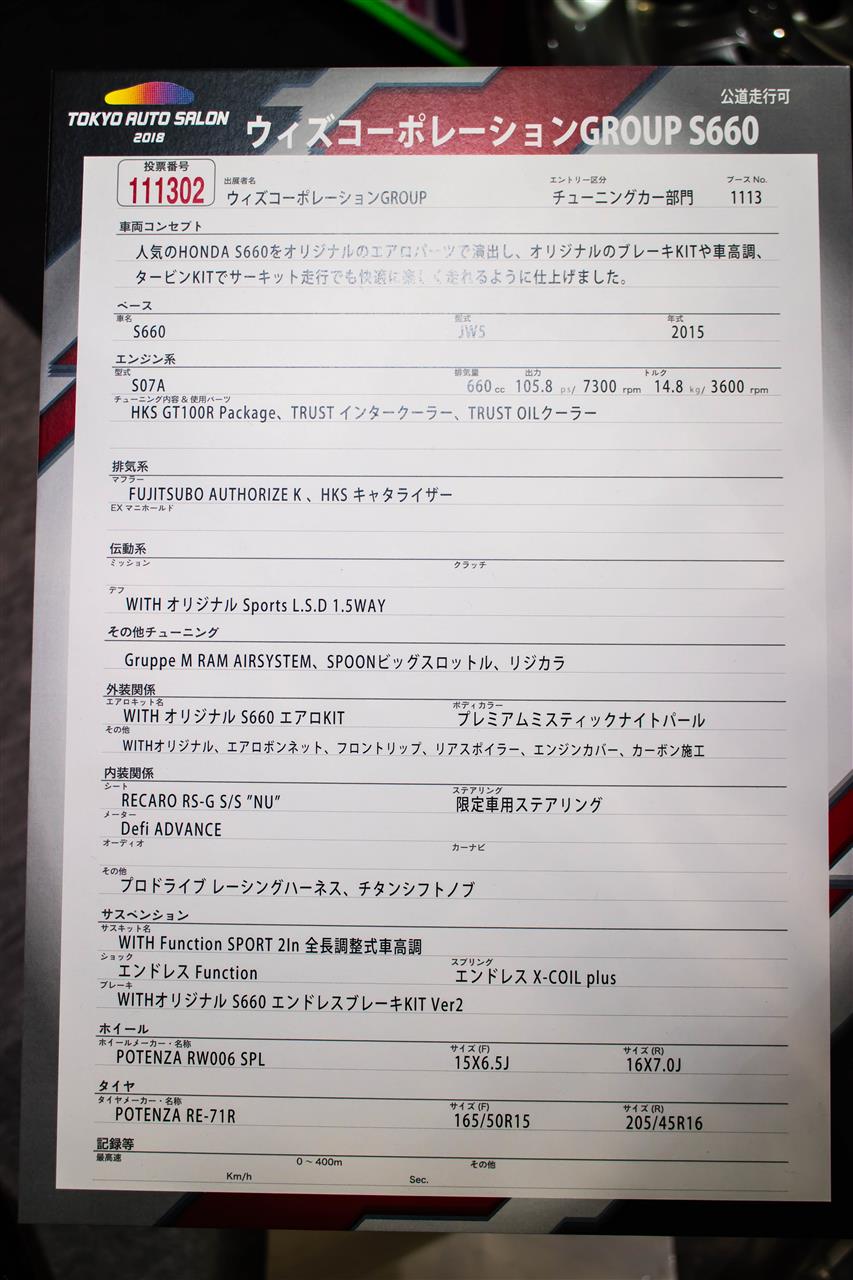 TOKYO AUTO SALON
2018
公道走行可
ウィズコーポレーションGROUP S660
投票番号
111302
出展者名
ウィズコーポレーションGROUP
エントリー区分
チューニングカー部門
ブース No.
1113
車両コンセプト
人気のHONDA S660をオリジナルのエアロパーツで演出し、オリジナルのブレーキKITや車高調、
タービンKITでサーキット走行でも快適に楽しく走れるように仕上げました。
ベース
車名
S660
型式
JW5
年式
2015
エンジン系
型式
S07A
排気量
660 cc
出力
105.8 ps/ 7300 rpm
トルク
14.8 kg/ 3600 rpm
チューニング内容 & 使用パーツ
HKS GT100R Package、TRUST インタークーラー、TRUST OILクーラー
排気系
マフラー
FUJITSUBO AUTHORIZE K 、HKS キャタライザー
EX マニホールド
伝動系
ミッション
クラッチ
デフ
WITH オリジナル Sports L.S.D 1.5WAY
その他チューニング
Gruppe M RAM AIRSYSTEM、SPOONビッグスロットル、リジカラ
外装関係
エアロキット名
WITH オリジナル S660 エアロKIT
ボディカラー
プレミアムミスティックナイトパール
その他
WITHオリジナル、エアロボンネット、フロントリップ、リアスポイラー、エンジンカバー、カーボン施工
内装関係
シート
RECARO RS-G S/S "NU"
ステアリング
限定車用ステアリング
メーター
Defi ADVANCE
オーディオ
カーナビ
その他
プロドライブ レーシングハーネス、チタンシフトノブ
サスペンション
サスキット名
WITH Function SPORT 2In 全長調整式車高調
ショック
エンドレス Function
スプリング
エンドレス X-COIL plus
ブレーキ
WITHオリジナル S660 エンドレスブレーキKIT Ver2
ホイール
ホイールメーカー・名称
POTENZA RW006 SPL
サイズ (F)
15X6.5J
サイズ (R)
16X7.0J
タイヤ
タイヤメーカー・名称
POTENZA RE-71R
サイズ (F)
165/50R15
サイズ (R)
205/45R16
記録等
最高速
Km/h
0 ～ 400m
Sec.
その他